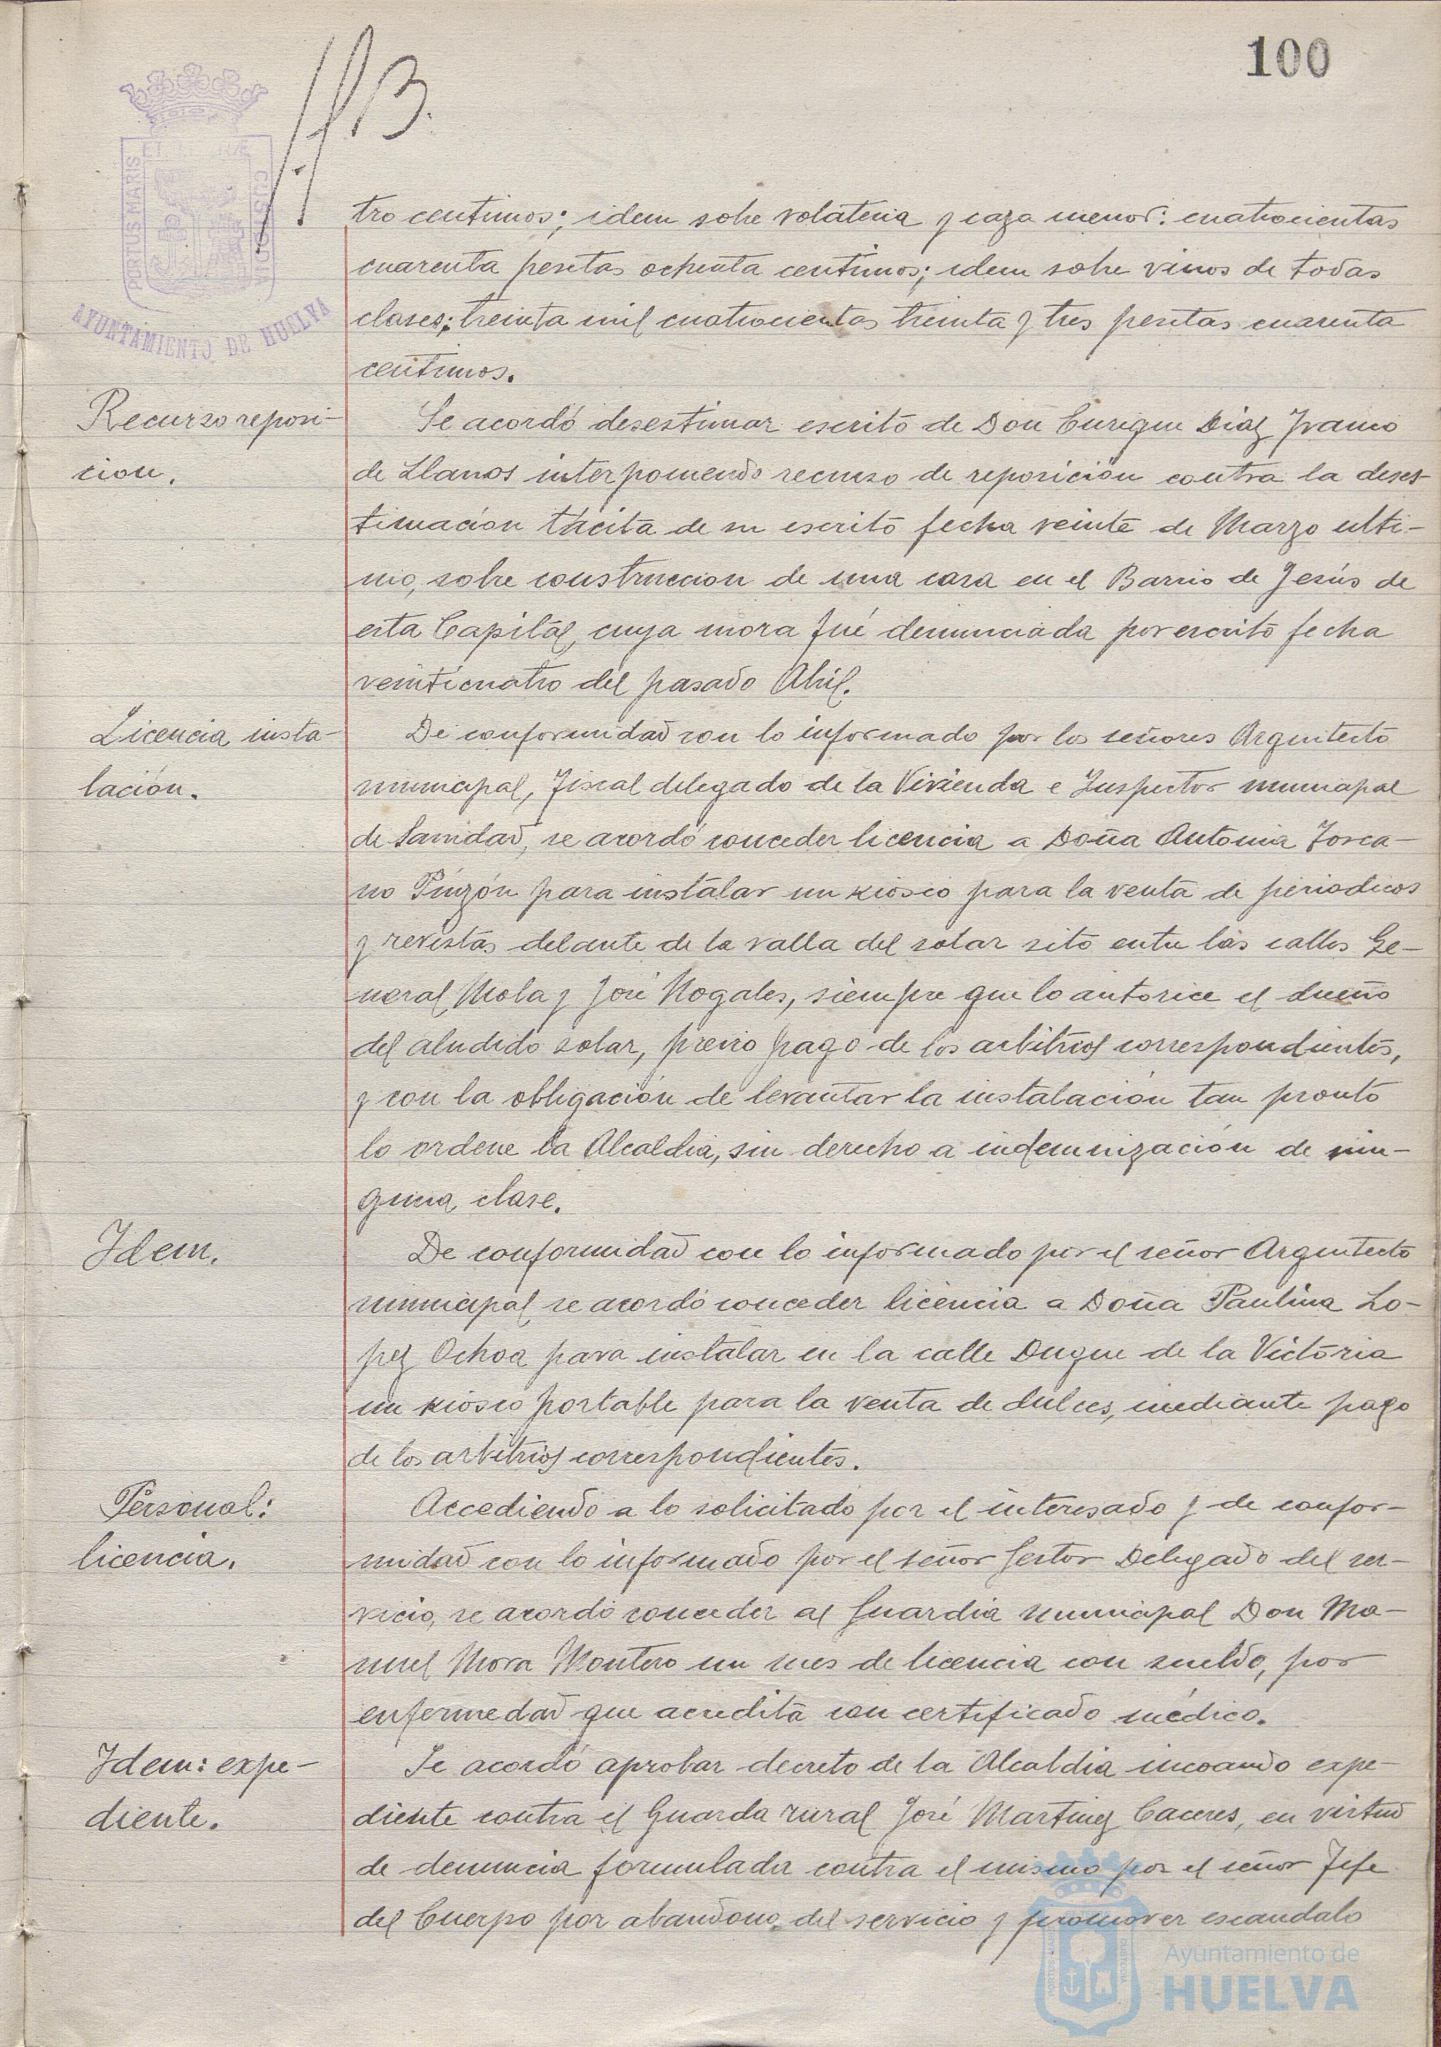 100
PORTUS MARIS
CUSTODIA
AYUNTAMIENTO DE HUELVA
tro centimos; idem sobre volateria y caza menor: cuatrocientas
cuarenta pesetas ochenta centimos; idem sobre vinos de todas
clases; treinta mil cuatrocientas treinta y tres pesetas cuarenta
centimos.
Recurso reposi-
cion.
Se acordó desestimar escrito de Don Enrique Diaz Franco
de Llanos interponiendo recurso de reposición contra la deses-
timación tácita de su escrito fecha veinte de Marzo ulti-
mo, sobre construccion de una casa en el Barrio de Jesús de
esta Capital, cuya mora fué denunciada por escrito fecha
veinticuatro del pasado Abril.
Licencia insta-
lación.
De conformidad con lo informado por los señores Arquitecto
municipal, Fiscal delegado de la Vivienda e Inspector municipal
de Sanidad, se acordó conceder licencia a Doña Antonia Tosca-
no Pinzón para instalar un kiosco para la venta de periodicos
y revistas delante de la valla del solar sito entre las calles Ge-
neral Mola y José Nogales, siempre que lo autorice el dueño
del aludido solar, previo pago de los arbitrios correspondientes,
y con la obligación de levantar la instalación tan pronto
lo ordene la Alcaldia, sin derecho a indemnización de nin-
guna clase.
Idem.
De conformidad con lo informado por el señor Arquitecto
municipal se acordó conceder licencia a Doña Paulina Lo-
pez Ochoa para instalar en la calle Duque de la Victoria
un kiosco portable para la venta de dulces, mediante pago
de los arbitrios correspondientes.
Personal:
licencia.
Accediendo a lo solicitado por el interesado y de confor-
midad con lo informado por el señor Gestor Delegado del ser-
vicio, se acordó conceder al Guardia municipal Don Ma-
nuel Mora Montero un mes de licencia con sueldo, por
enfermedad que acredita con certificado médico.
Idem: expe-
diente.
Se acordó aprobar decreto de la Alcaldia incoando expe-
diente contra el Guarda rural José Martinez Caceres, en virtud
de denuncia formulada contra el mismo por el señor Jefe
del Cuerpo por abandono del servicio y promover escandalo
Ayuntamiento de
HUELVA